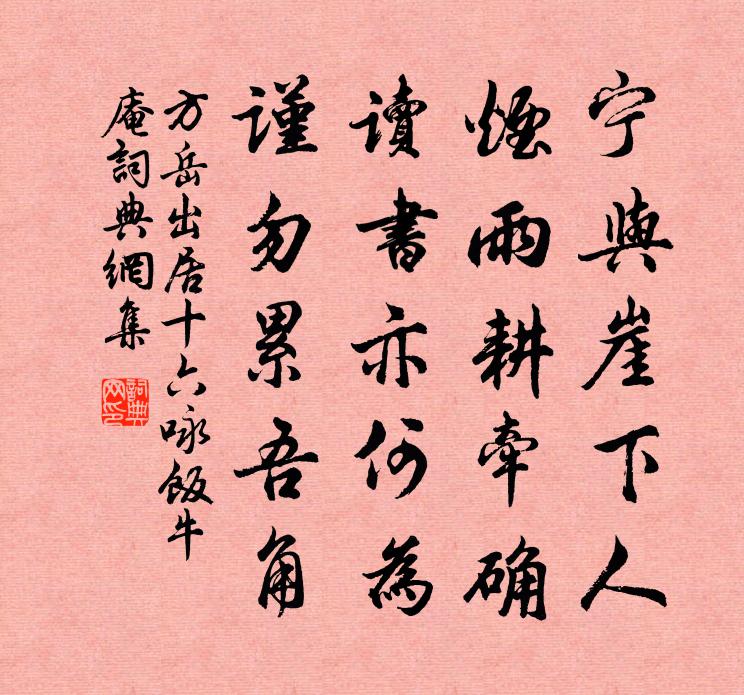 宁與崖下人
煙雨耕牽确
讀書亦何為
謹勿累吾角
方岳出居十六咏飯牛
庵詞典網集
詞典
网印